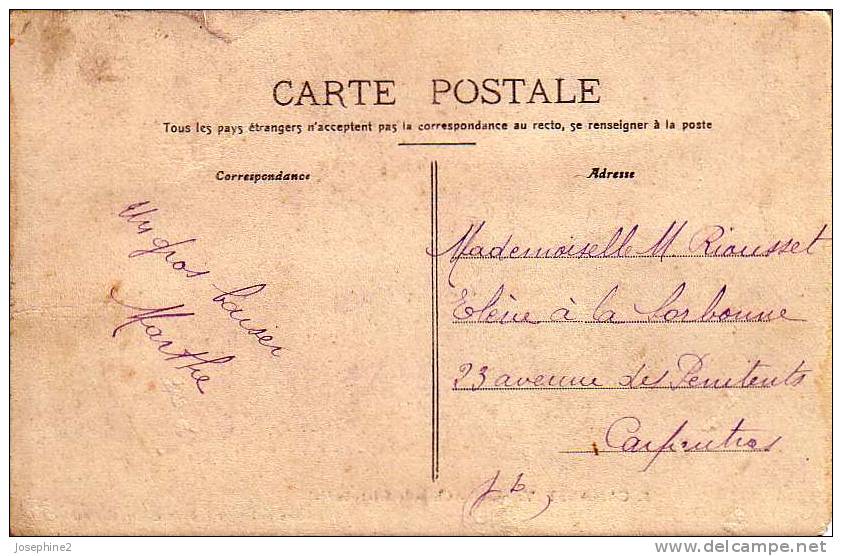 CARTE POSTALE
Tous les pays étrangers n'acceptent pas la correspondance au recto, se renseigner à la poste
Correspondance
Adresse
Un gros baiser
Marthe
Mademoiselle M. Riousset
Elève à la Sorbonne
23 avenue des Penitents
Carpentras
Josephine2
http://www.delcampe.net